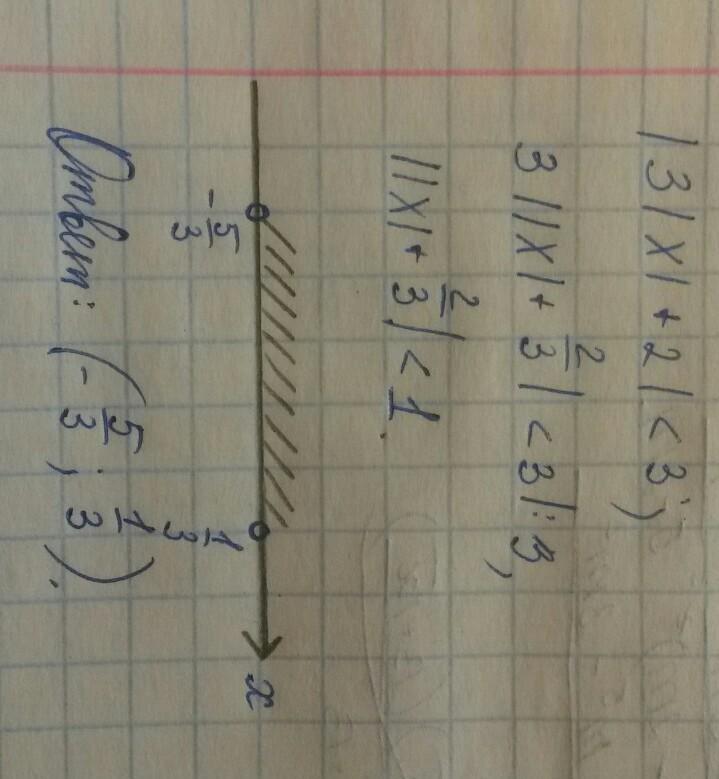 |3|x|+2|<3;
3||x|+2/3|<3|:3,
||x|+2/3|<1.
-5/3 1/3 x
Ответ: (-5/3; 1/3).